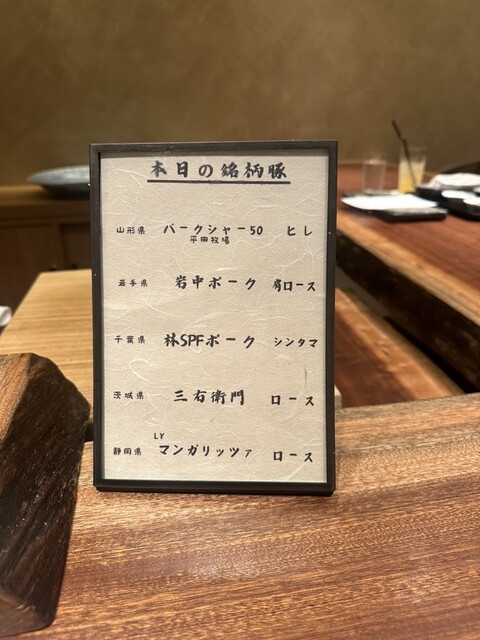 本日の銘柄豚
山形県 バークシャー50 ヒレ
平田牧場
岩手県 岩中ポーク 肩ロース
千葉県 林SPFポーク シンタマ
茨城県 三右衛門 ロース
LY
静岡県 マンガリッツァ ロース